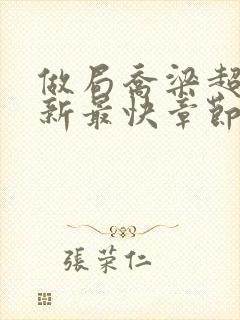 做局喬梁超
新最快章節
張荣仁